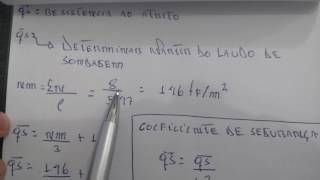 q̅s = RESISTENCIA AO ATRITO
q̅s
DETERMINAIS ATRAVES DO LAUDO DE
SONDAGEM
Nm = ΣN / ℓ = 8 / 17 = 1,96 tF/m²
q̅s = Nm / 3 + 1
q̅s = 1,96 + 1
COEFICIENTE DE SEGURANÇA
q̅s = q̅s